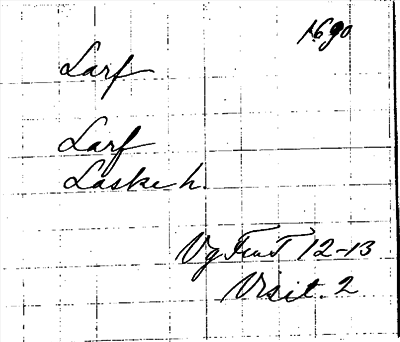 1690
Larf
Larf
Laske h.
Vg FmT 12-13
Visit. 2